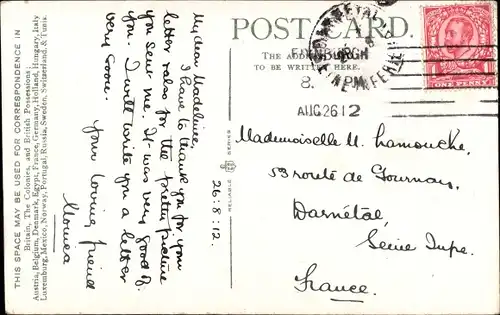 THIS SPACE MAY BE USED FOR CORRESPONDENCE IN
Britain, The Colonies, and British Possessions
Austria, Belgium, Denmark, Egypt, France, Germany, Holland, Hungary, Italy
Luxemburg, Mexico, Norway, Portugal, Russia, Sweden, Switzerland, & Tunis.
My dear Madeleine,
I have to thank you for your
letter & also for the pretty picture
you sent me. It was very good of
you. I will write you a letter
very soon.
Your loving friend
26:8:12.
RELIABLE
SERIES
POST CARD.
THE ADDRESS
TO BE WRITTEN HERE.
EDINBURGH
8. PM
AUG 26 12
DARNETAL
ONE PENNY
Mademoiselle M. Lamouche,
59 route de Gournay,
Darnétal,
Seine Infre.
France.